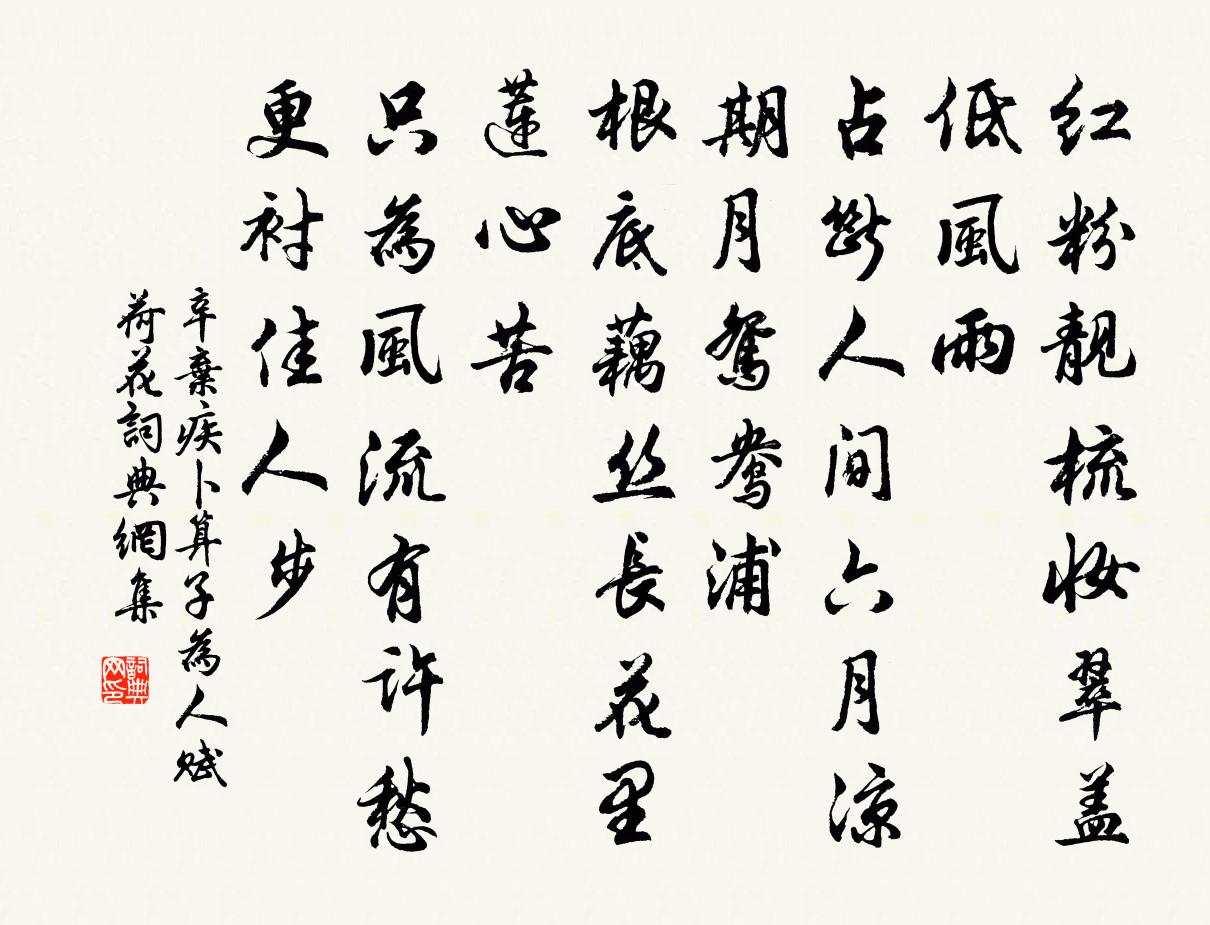 红粉靓梳妆翠盖
低風雨
占断人间六月凉
期月鸳鸯浦
根底藕丝長花里
莲心苦
只為風流有許愁
更衬佳人步
辛棄疾卜算子為人赋
荷花詞典網集
詞典网印